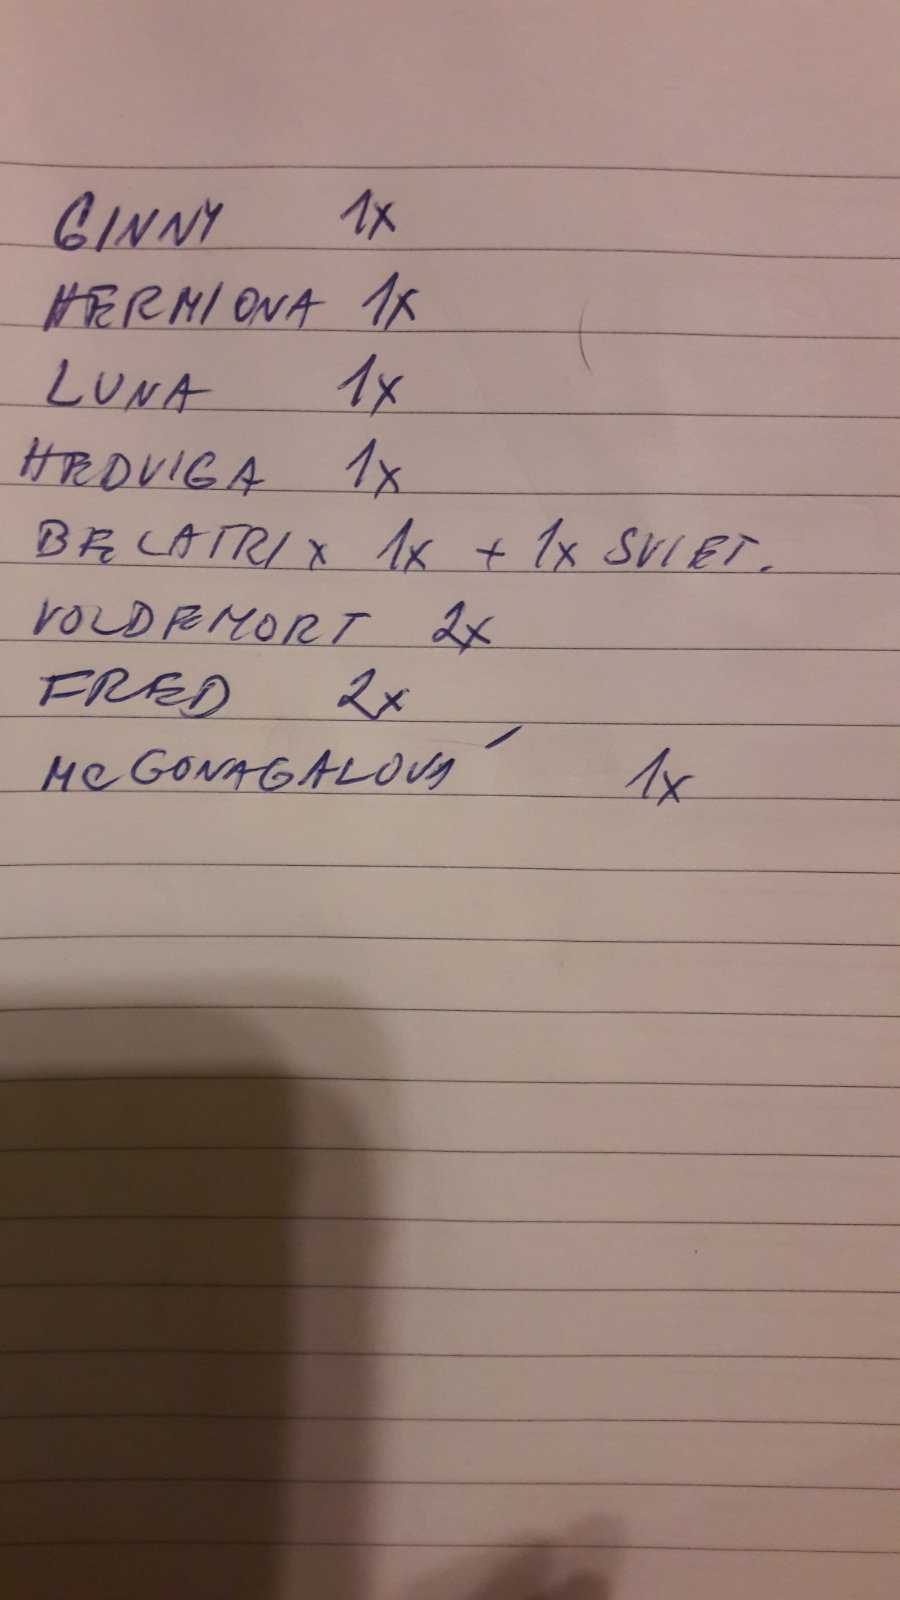 GINNY 1x
HERMIONA 1x
LUNA 1x
HEDVIGA 1x
BELATRIX 1x + 1x SVIET.
VOLDEMORT 2x
FRED 2x
MCGONAGALOVÁ 1x